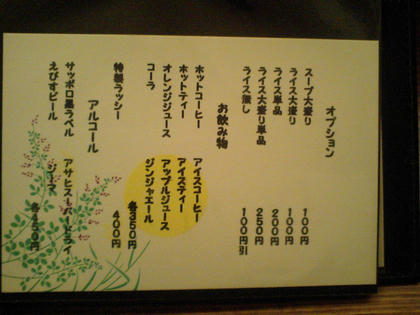 オプション
スープ大盛り 100円
ライス大盛り 100円
ライス単品 200円
ライス大盛り単品 250円
ライス無し 100円引
お飲み物
ホットコーヒー アイスコーヒー
ホットティー アイスティー
オレンジジュース アップルジュース
コーラ ジンジャエール
各350円
特製ラッシー 400円
アルコール
サッポロ黒ラベル アサヒスーパードライ
えびすビール ジーマ
各450円